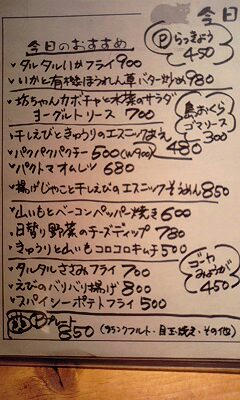 今日
今日のおすすめ
Ⓟらっきょう
450
・タルタルいかフライ 900
・いかと有機ほうれん草バター炒め 980
・坊ちゃんカボチャと水菜のサラダ
ヨーグルトソース 700
島おくら
ゴマソース
300
・干しえびときゅうりのエスニックあえ
480
・パクパクパクチー 500 (W900)
・パクトマオムレツ 680
・揚げじゃこと干しえびのエスニックそうめん 850
・山いもとベーコンペッパー焼き 600
・日替り野菜のチーズディップ 780
・きゅうりと山いもコロコロキムチ 500
ゴーヤ
みょうが
450
・タルタルささみフライ 700
・えびのバリバリ揚げ 800
・スパイシーポテトフライ 500
プレート
850 (フランクフルト・目玉焼き・その他)